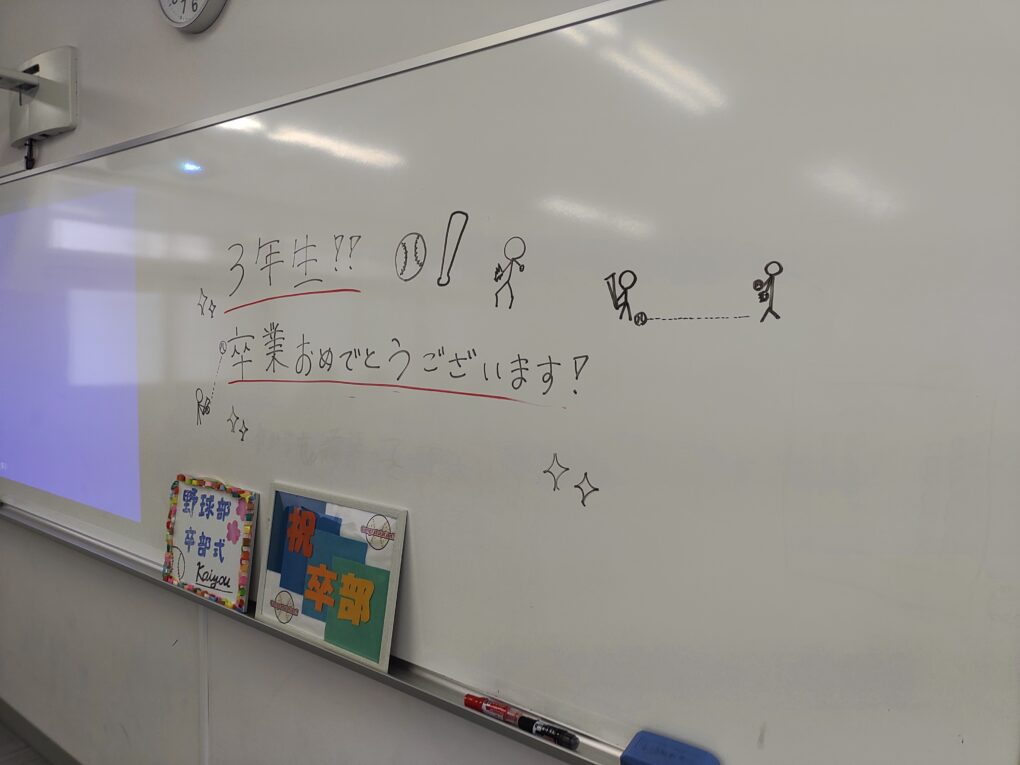 3年生!!
卒業おめでとうございます!
野球部
卒部式
Kaiyou
祝
卒部